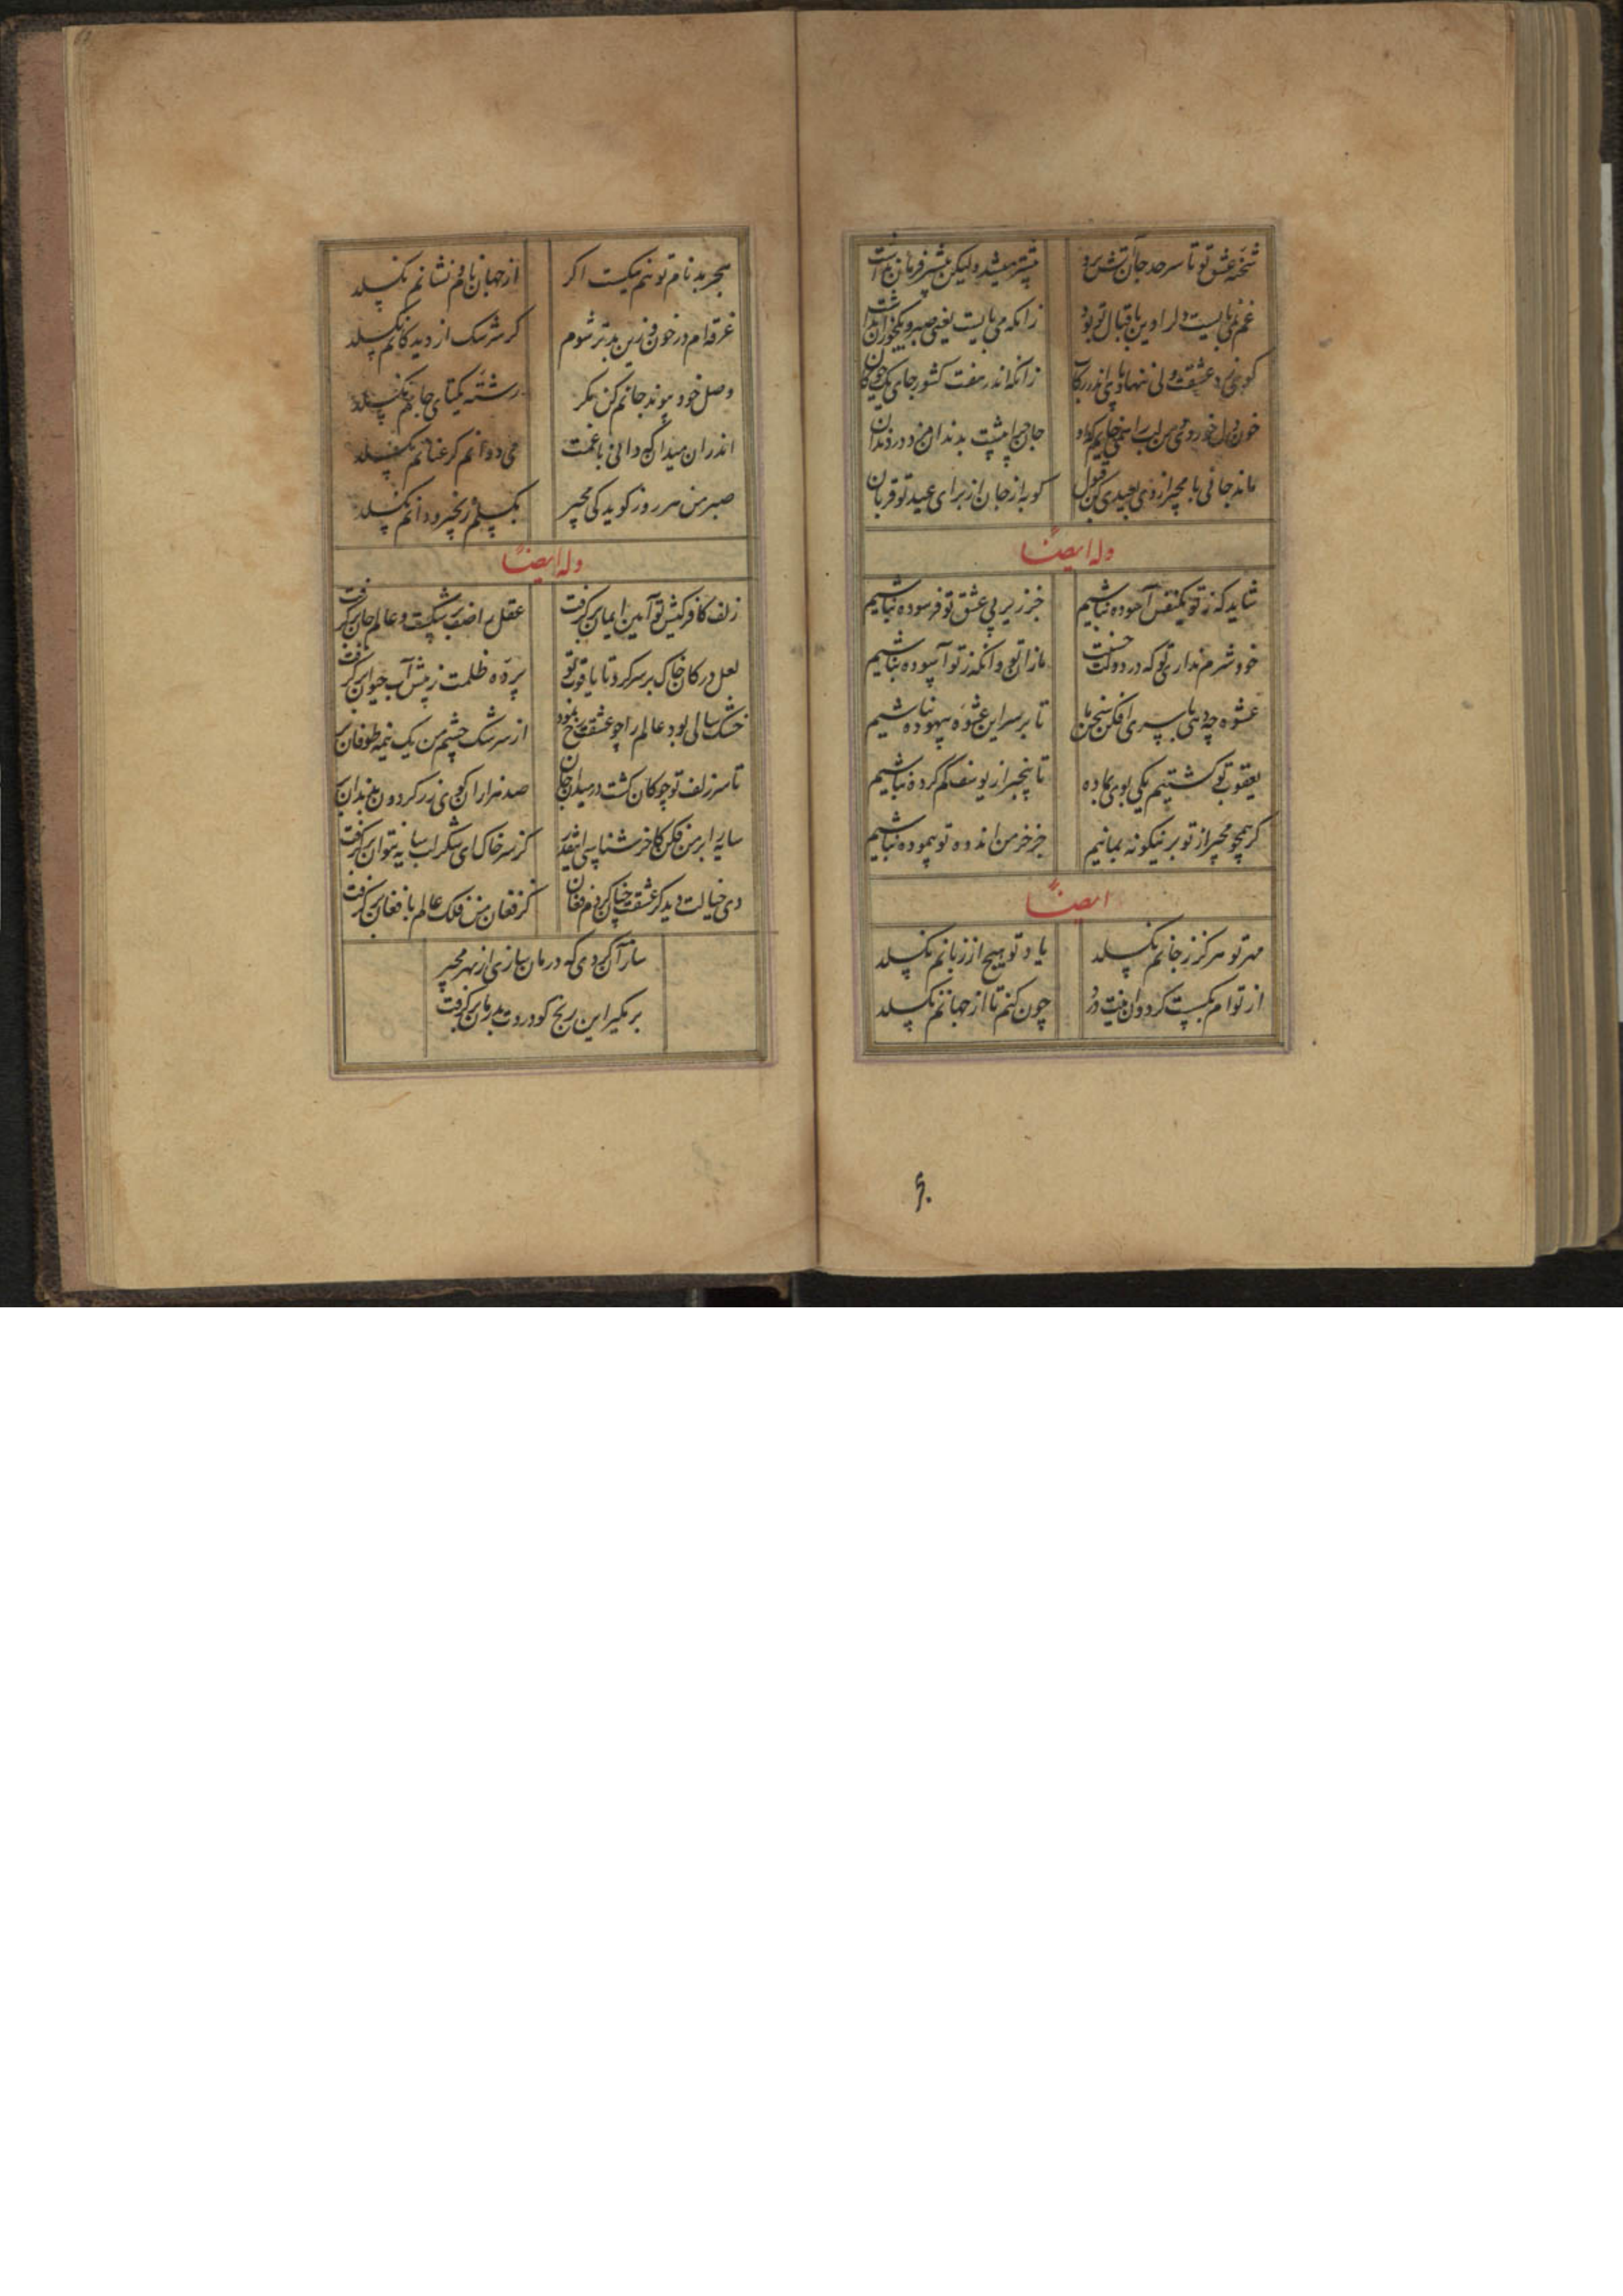 شحنه عشق تو تا سرحد جان
پیشتر میشد ولیکن پیشتر فرمان نداشت
غم نمی بایست دلرا وین باقبال تو بود
زانکه می بایست یعنی صبر و
زانکه اندر هفت کشور جای یک
خون دل خوردی
ماند جانی با مجیر از روی بعیدی کن قبول
کو به از جان از برای عید تو قربان نداشت
وله ایضاً
شاید که ز تو یکنفس آسوده نباشیم
جز زیر پی عشق تو فرسوده نباشیم
خود شرم نداری تو که در دولت حسنت
ما زان تو وانگه ز تو آسوده نباشیم
عشوه چه دهی با سپری افکن سخن ما
تا بر سر این عشوه بیهوده نباشیم
یعقوب تو گشتیم یکی بوی بما ده
تا بیخبر از یوسف گم کرده نباشیم
گر همچو مجیر از تو برینگونه بمانیم
جز خرمن اندوه تو پیموده نباشیم
ایضاً
مهر تو هرگز ز جانم نگسلد
یاد تو هیچ از زبانم نگسلد
از توام بگسست گردون نیست درد
چون کنم تا از جهانم نگسلد
هجر بد نام توئم نیکست اگر
از جهان نام و نشانم نگسلد
غرقه ام در خون وزین بدتر شوم
گر سرشک از دیدگانم نگسلد
وصل خود پیوند جانم کن مگر
رشته یکتای جانم نگسلد
اندران میدان که دانی با غمت
می دوانم گر عنانم نگسلد
صبر من هر روز گوید کی مجیر
بگسلم زنجیر و دانم نگسلد
وله ایضاً
زلف کافر کیش تو آیین ایمان برگرفت
عقل را صف برشکست و عالم جان برگرفت
لعل در کان خاک بر سر کرد تا یاقوت تو
پرده ظلمت ز پیش آب حیوان برگرفت
خشک سالی بود عالم را چو عشقت رخ نمود
از سرشک چشم من یک نیمه طوفان برگرفت
تا سر زلف تو چوگان گشت در میدان جان
صد هزاران گوی زر گردون
سایه ای بر من فکن کاخر شناسی اینقدر
کز سر خاک ای شکر لب سایه نتوان برگرفت
دی خیالت دید کز عشقت چنان کردم فغان
کز فغان من فلک عالم بافغان برگرفت
ساز آن کردی که درمان سازی از بهر مجیر
برمگیر این رنج کو دردت بدرمان برگرفت